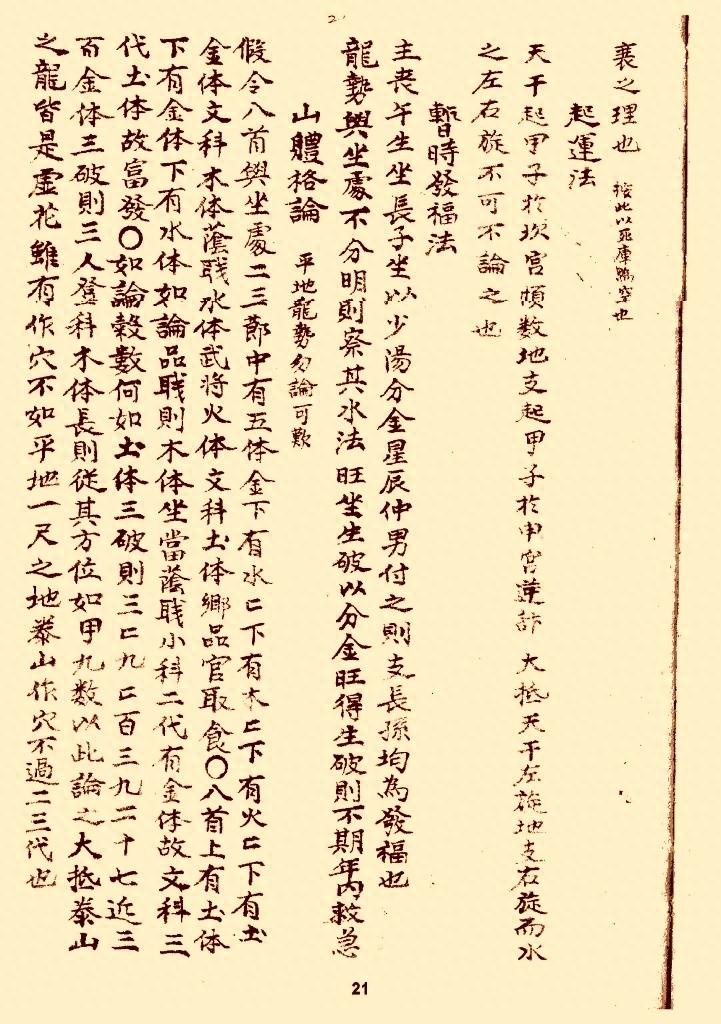 衰之理也 按此以死庫為空也
起運法
天干起甲子於坎宮順數地支起甲子於申宮逆 大抵天干左旋地支右旋而水
之左右旋不可不論之也
暫時發福法
主喪午生坐長子坐以少湯分金星辰仲男付之則支長孫均為發福也
龍勢與坐處不分明則察其水法旺坐生破以分金旺得生破則不期年內救急
山軆格論 平地龍勢勿論可歎
假令八首與坐處二三節中有五体金下有水匕下有木匕下有火匕下有土
金体文科木体蔭職水体武將火体文科土体鄉品官取食〇八首上有土体
下有金体下有水体如論品職則木体坐當蔭職小科二代有金体故文科三
代土体故富發〇如論穀數何如土体三破則三匕九匕百三九二十七近三
百金体三破則三人登科木体長則從其方位如甲九數以此論之大抵泰山
之龍皆是虛花雖有作穴不如平地一尺之地泰山作穴不過二三代也
21